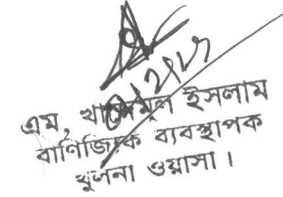 এম, খাদেমুল ইসলাম
বাণিজ্যিক ব্যবস্থাপক
খুলনা ওয়াসা।